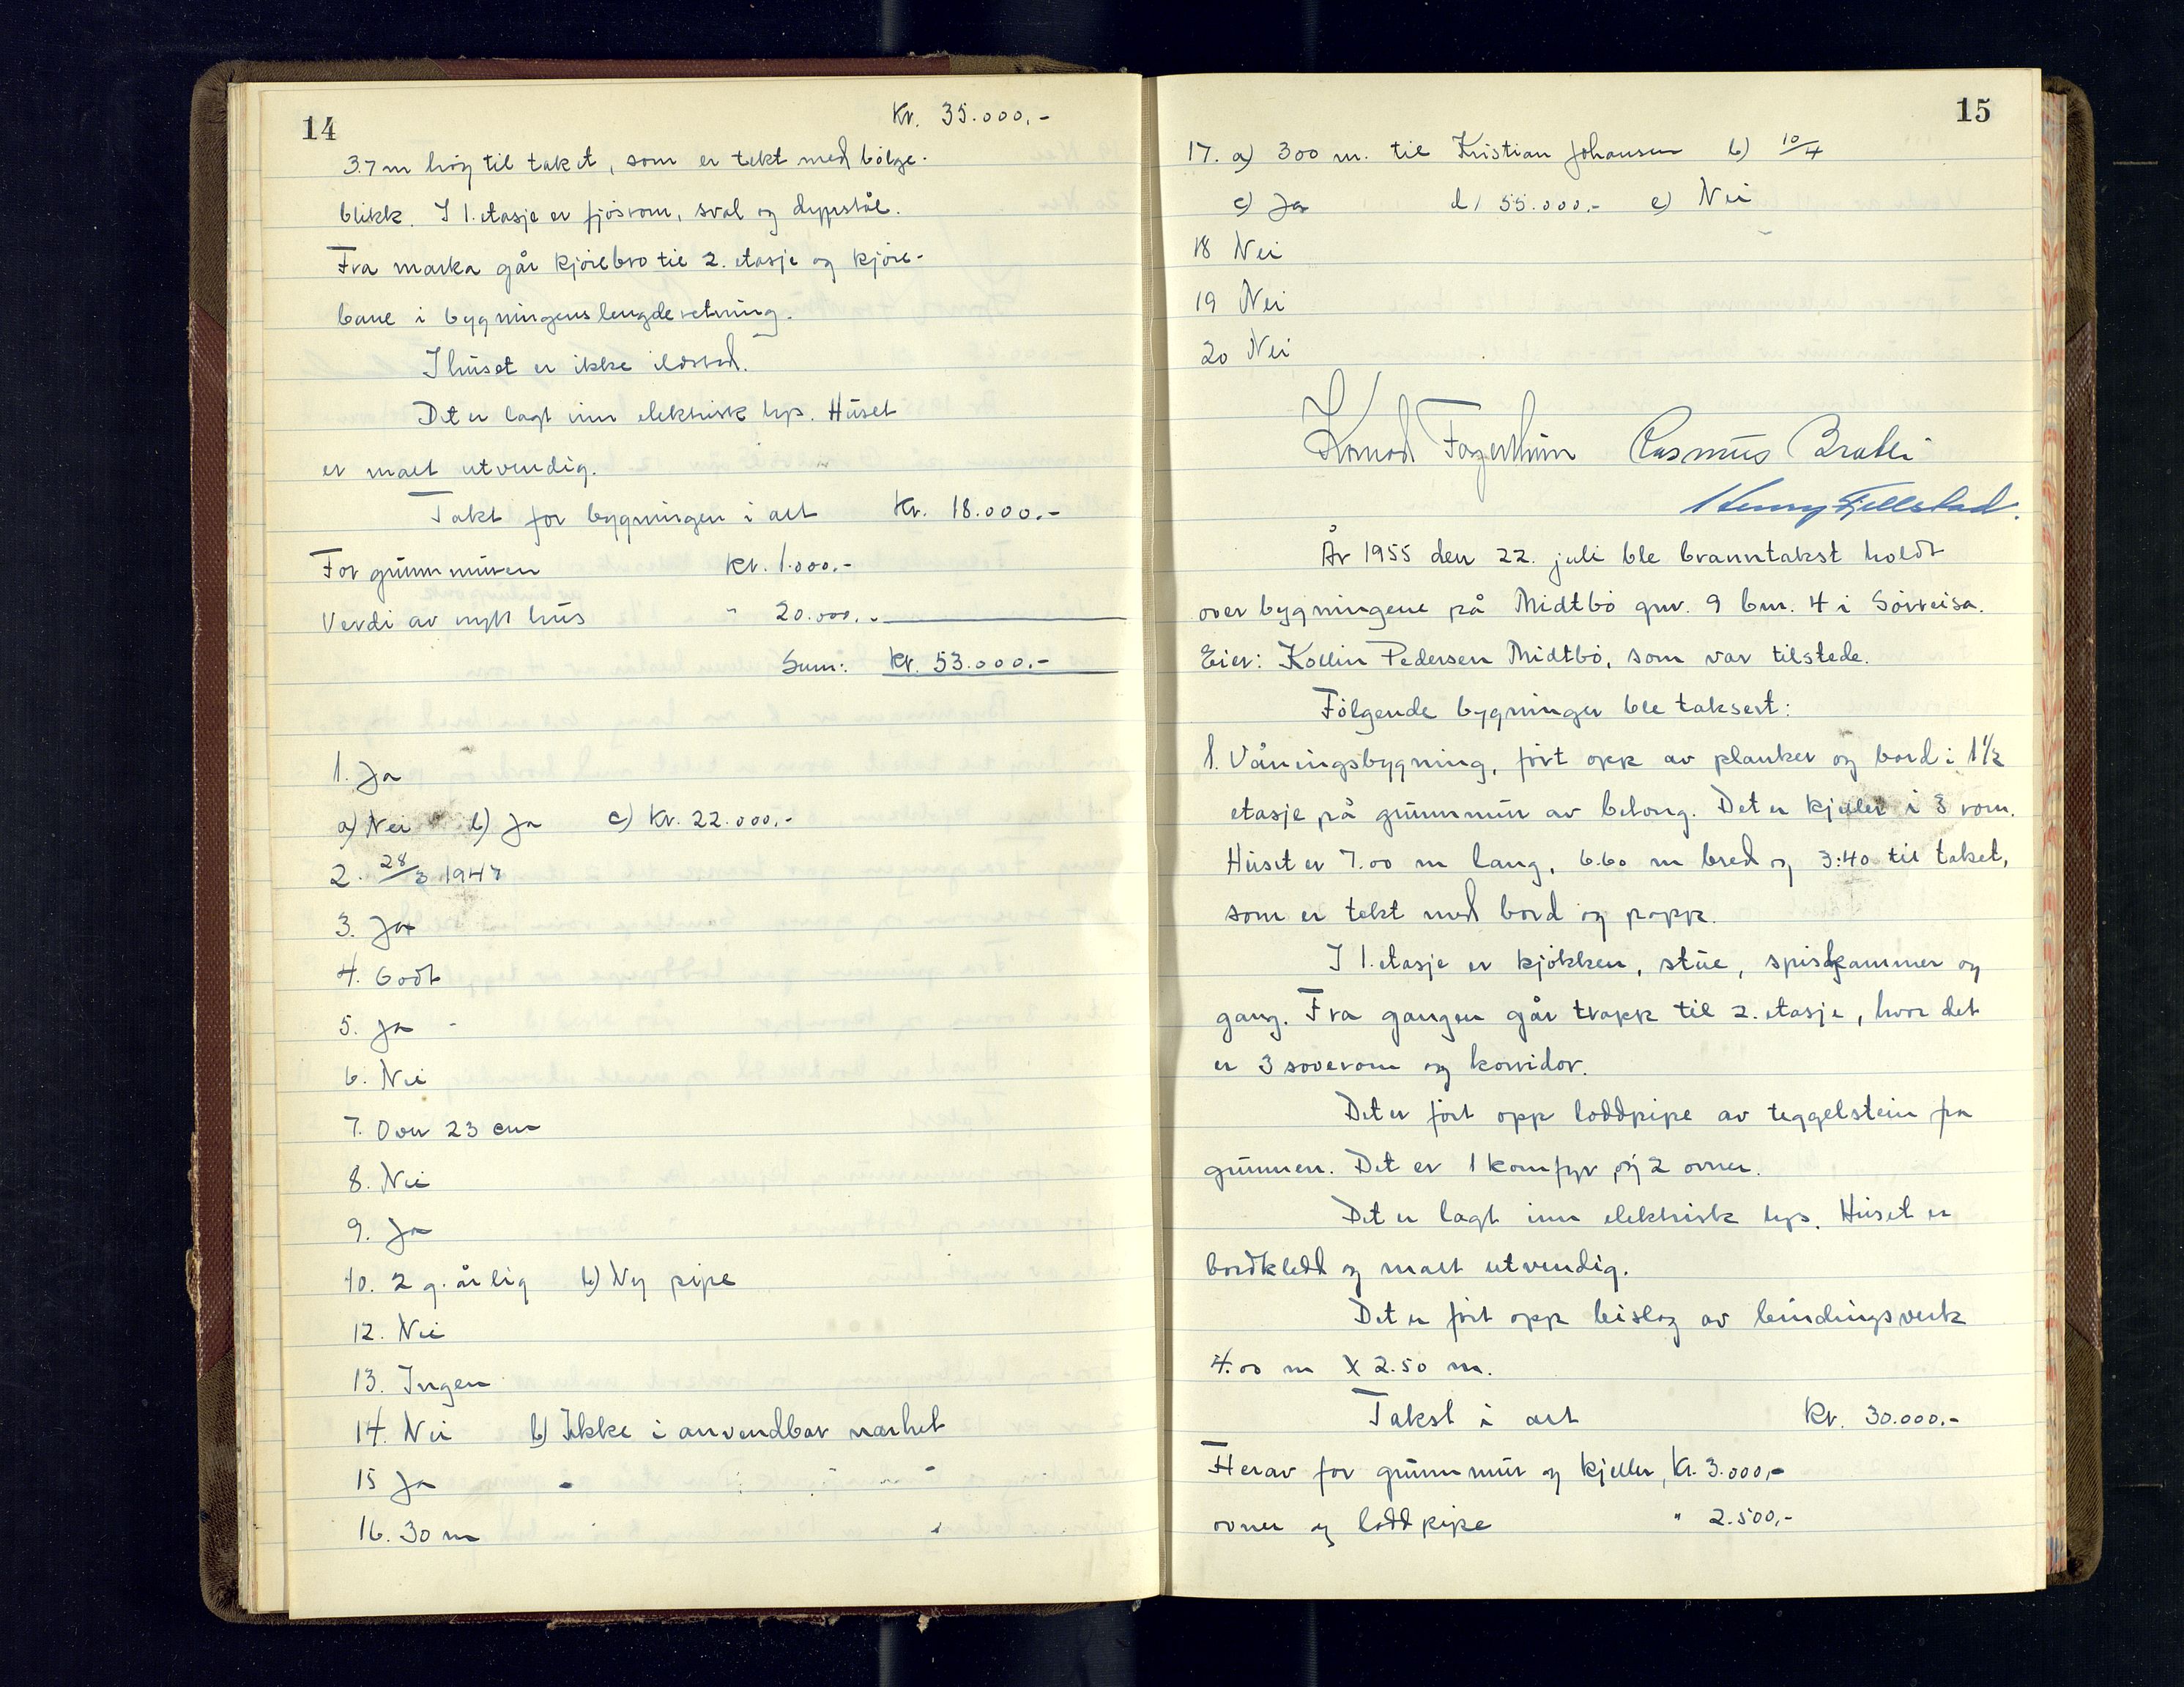 14
Kr. 35.000.-
3.7 m høg til taket, som er tekt med bølge-
blikk. I 1. etasje er fjøsrom, sval og dypstål.
Fra marka går kjørebro til 2. etasje og kjøre-
bane i bygningens lengderetning.
I huset er ikke ildsted.
Det er lagt inn elektrisk lys. Huset
er malt utvendig.
Takt for bygningen i alt Kr. 18.000.-
For grunnmuren Kr. 1.000.-
Verdi av nytt hus " 20.000.-
Sum: Kr. 53.000.-
1. Ja
a) Nei b) Ja c) Kr. 22.000.-
2. 28/3 1947
3. Ja
4. Godt
5. Ja
6. Nei
7. Over 23 cm
8. Nei
9. Ja
10. 2 g. årlig b) Ny pipe
12. Nei
13. Ingen
14. Nei b) Ikke i anvendbar nærhet
15 Ja
16. 30 m
15
17. a) 300 m. til Kristian Johansen b) 10/4
c) Ja d) 55.000.- e) Nei
18 Nei
19 Nei
20 Nei
Konrad Fagerheim Rasmus Bratli
Henry Fjellstad.
År 1955 den 22. juli ble branntakst holdt
over bygningene på Midtbø gnr. 9 bnr. 4 i Sørreisa.
Eier: Kollin Pedersen Midtbø, som var tilstede.
Følgende bygninger ble taksert:
1. Våningsbygning, ført opp av planker og bord i 1½
etasje på grunnmur av betong. Det er kjeller i 3 rom.
Huset er 7.00 m lang, 6.60 m bred og 3:40 til taket,
som er tekt med bord og papp.
I 1. etasje er kjøkken, stue, spiskammer og
gang. Fra gangen går trapp til 2. etasje, hvor det
er 3 soverom og korridor.
Det er ført opp loddpipe av teggelstein fra
grunnen. Det er 1 komfyr og 2 ovner.
Det er lagt inn elektrisk lys. Huset er
bordkledd og malt utvendig.
Det er ført opp bislag av bindingsverk
4.00 m X 2.50 m.
Takst i alt Kr. 30.000.-
Herav for grunnmur og kjeller, Kr. 3.000,-
ovner og loddpipe " 2.500,-